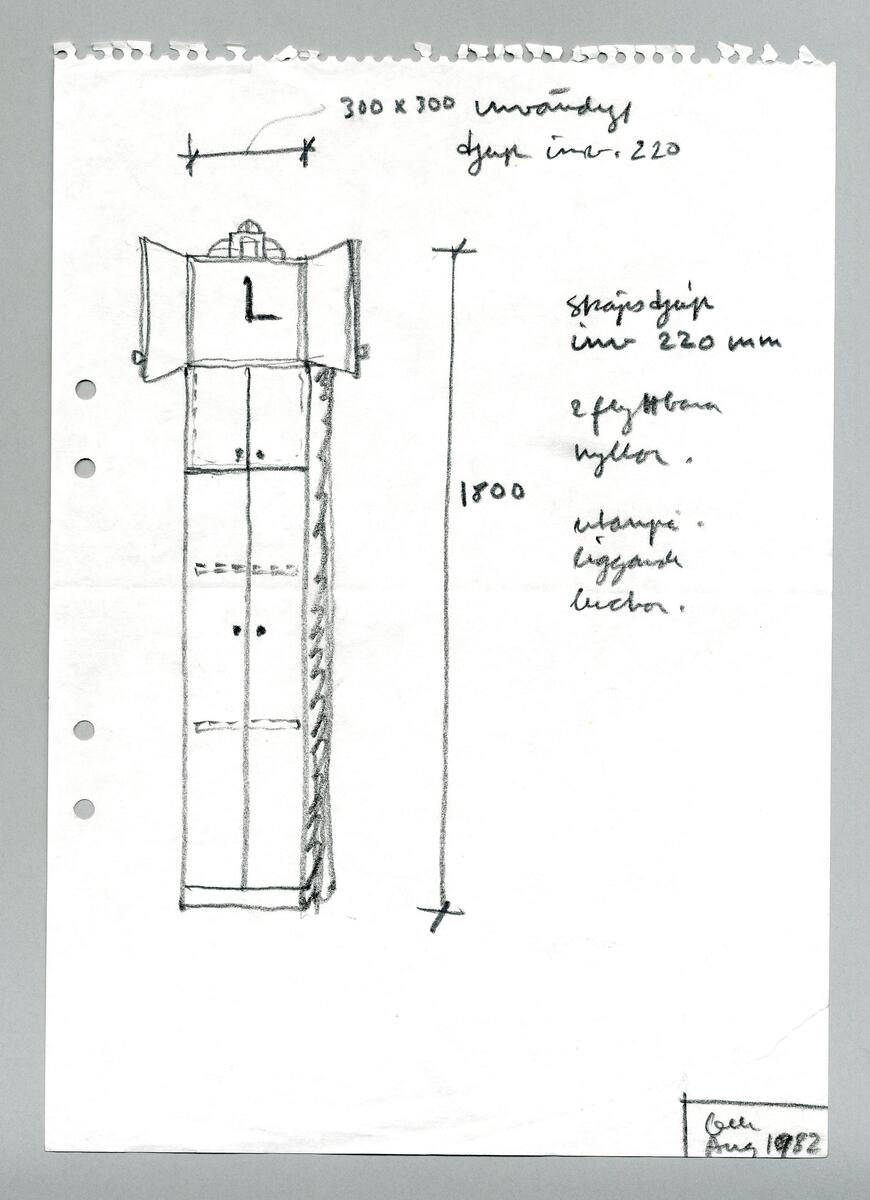 300 x 300 invändigt
djup inv. 220
skåpsdjup
inv 220 mm
2 flyttbara
hyllor.
1800
utanpå-
liggande
luckor.
Aug 1982